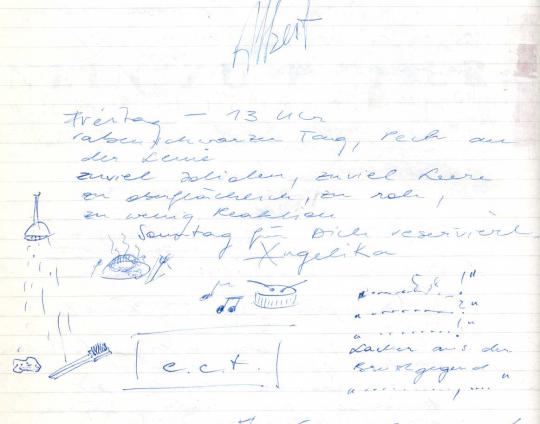 Albert
Freitag – 13 Uhr
rabenschwarzer Tag, Pech an
der Leine
zuviel, zuviel Leere
zu oberflächlich, zu roh,
zu wenig Reaktion
Sonntag für Dich reserviert
Angelika
e.c.t.
! "
? "
! "
aus der
"